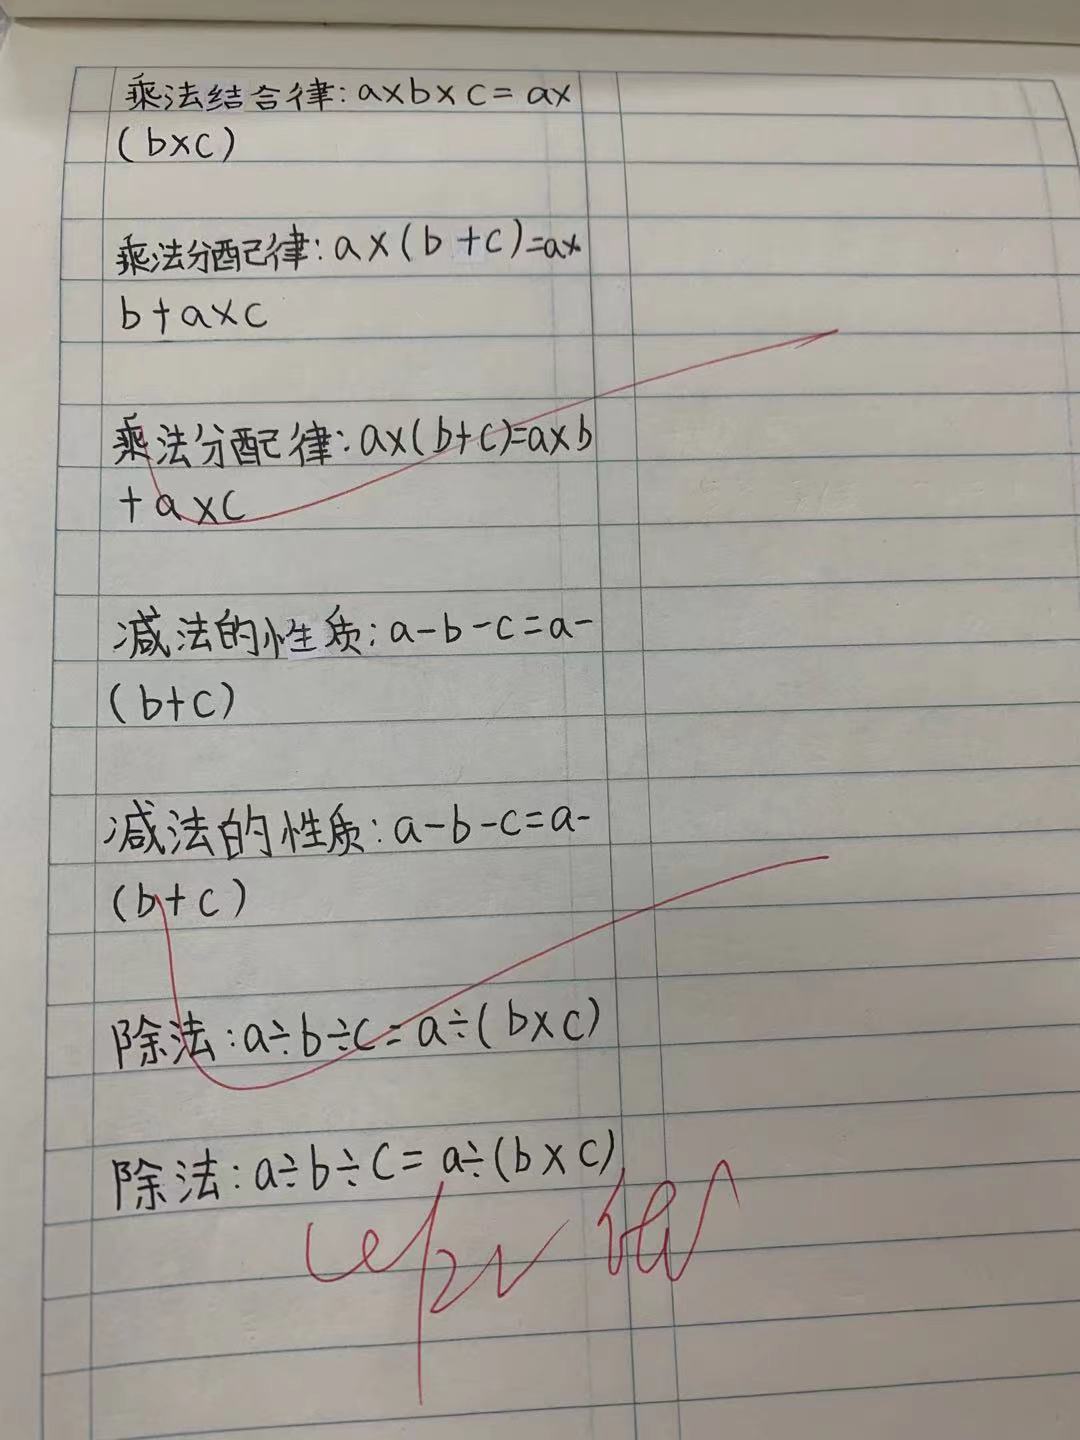 乘法结合律:a×b×c=a×
(b×c)
乘法分配律:a×(b+c)=a×
b+a×c
乘法分配律:a×(b+c)=a×b
+a×c
减法的性质:a-b-c=a-
(b+c)
减法的性质:a-b-c=a-
(b+c)
除法:a÷b÷c=a÷(b×c)
除法:a÷b÷c=a÷(b×c)